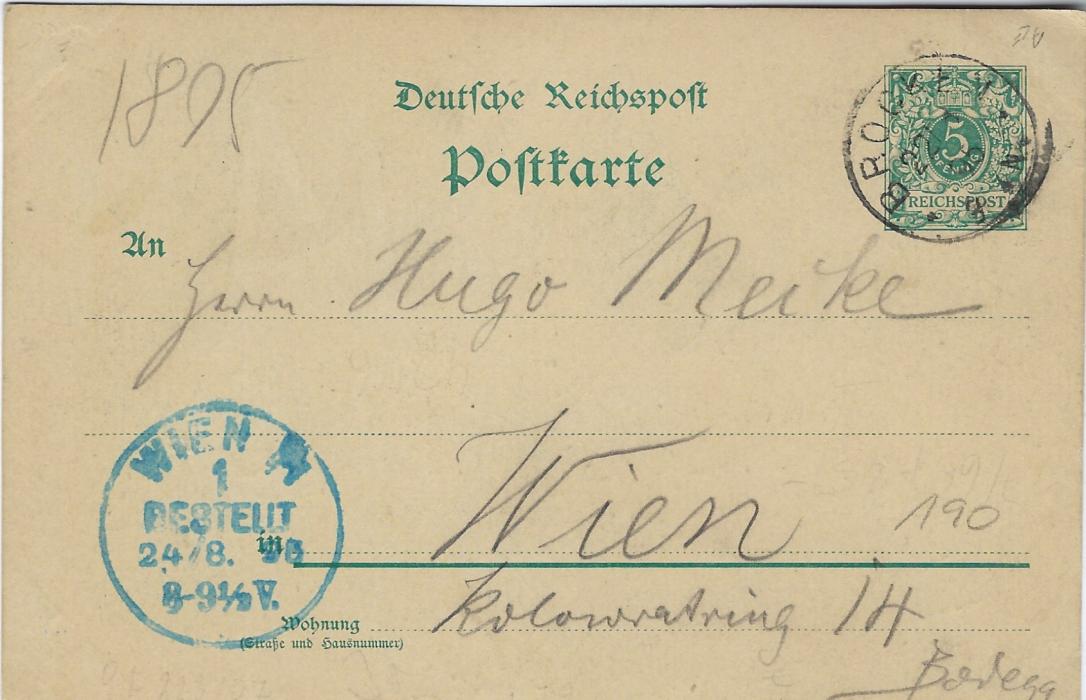 1895
Deutsche Reichspost
Postkarte
BROCKEN
5
PFENNIG
REICHSPOST
An
Herrn Hugo Meike
Wien
190
in
WIEN
1
BESTELLT
24/8. 95
8-9½V.
Kolowratring 14
Wohnung
(Straße und Hausnummer)
Bodega